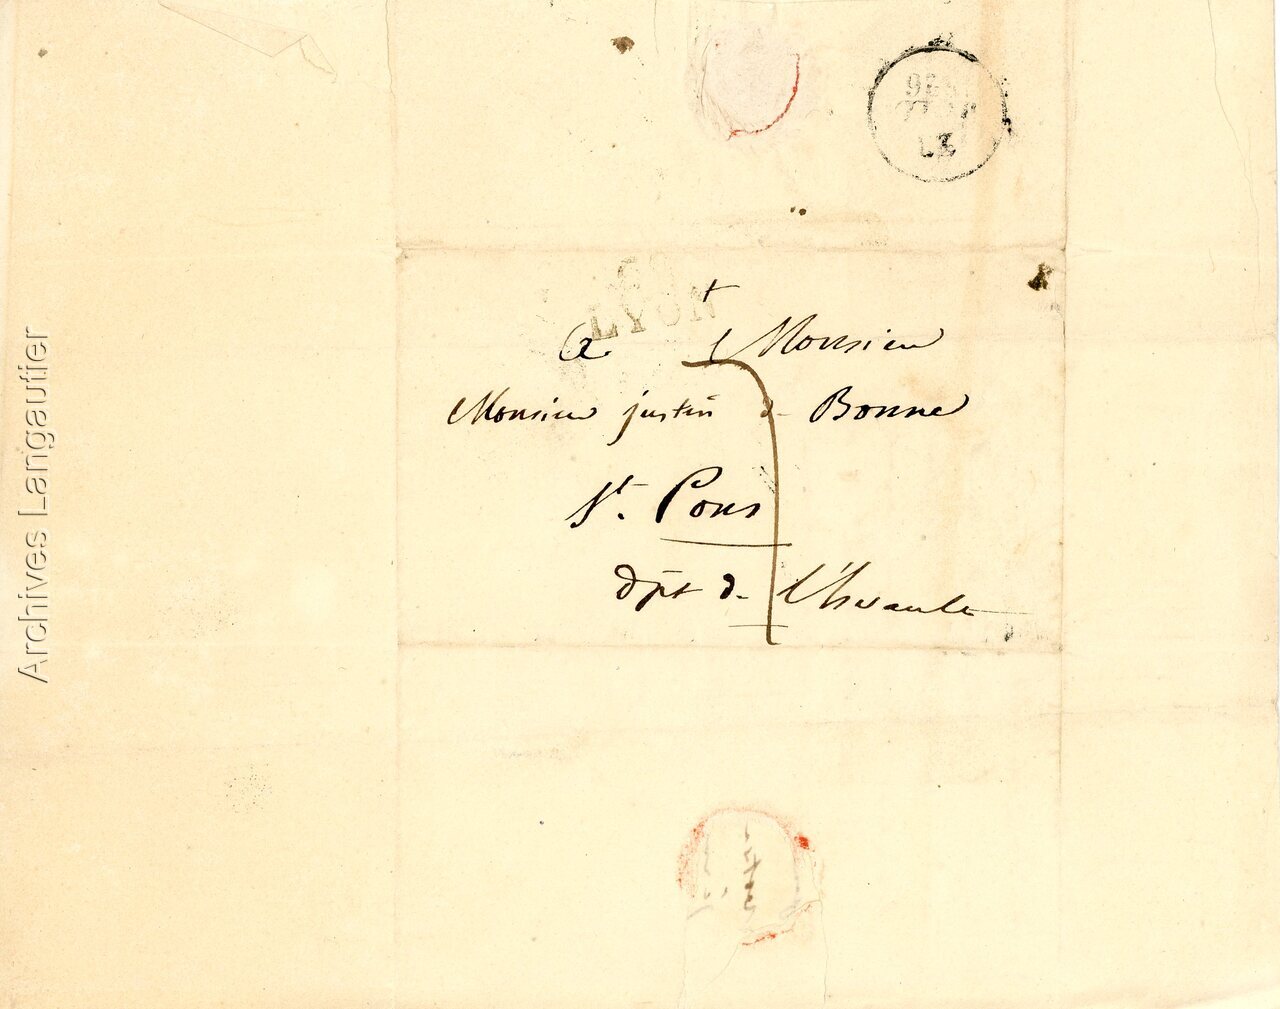 69
LYON
A Monsieur
Monsieur justin de Bonne
St. Pons
dpt de l'hérault
7
Archives Langautier